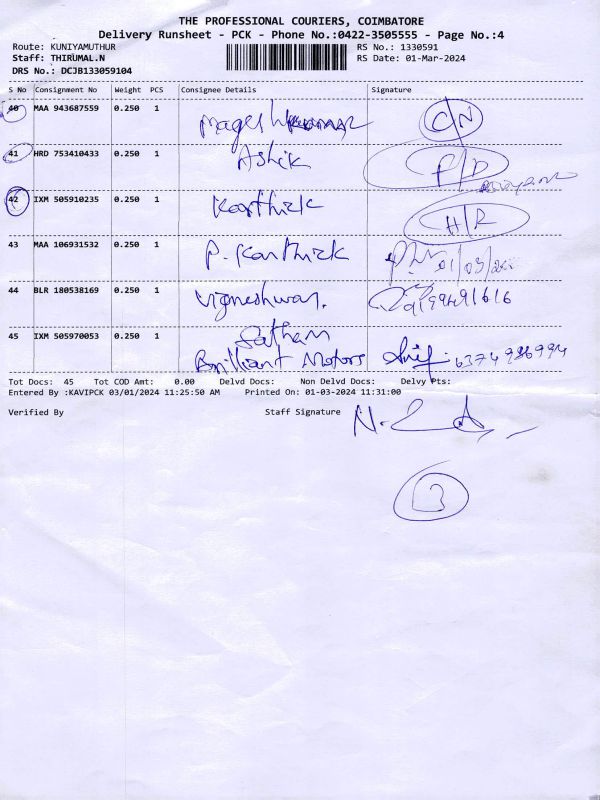 THE PROFESSIONAL COURIERS, COIMBATORE
Delivery Runsheet - PCK - Phone No.:0422-3505555 - Page No.:4
Route: KUNIYAMUTHUR RS No.: 1330591
Staff: THIRUMAL.N RS Date: 01-Mar-2024
DRS No.: DCJB133059104
S No Consignment No Weight PCS Consignee Details Signature
40 MAA 943687559 0.250 1 Mageshkumar C/N
41 HRD 753410433 0.250 1 Ashik F/D
42 IXM 505910235 0.250 1 Karthick H/R
43 MAA 106931532 0.250 1 P. Karthick
44 BLR 180538169 0.250 1 Vigneshwar.
45 IXM 505970053 0.250 1 Satham
Brilliant Motors 6374986994
Tot Docs: 45 Tot COD Amt: 0.00 Delvd Docs: Non Delvd Docs: Delvy Pts:
Entered By :KAVIPCK 03/01/2024 11:25:50 AM Printed On: 01-03-2024 11:31:00
Verified By Staff Signature
3